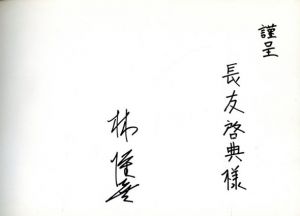 謹呈
長友啓典様
林